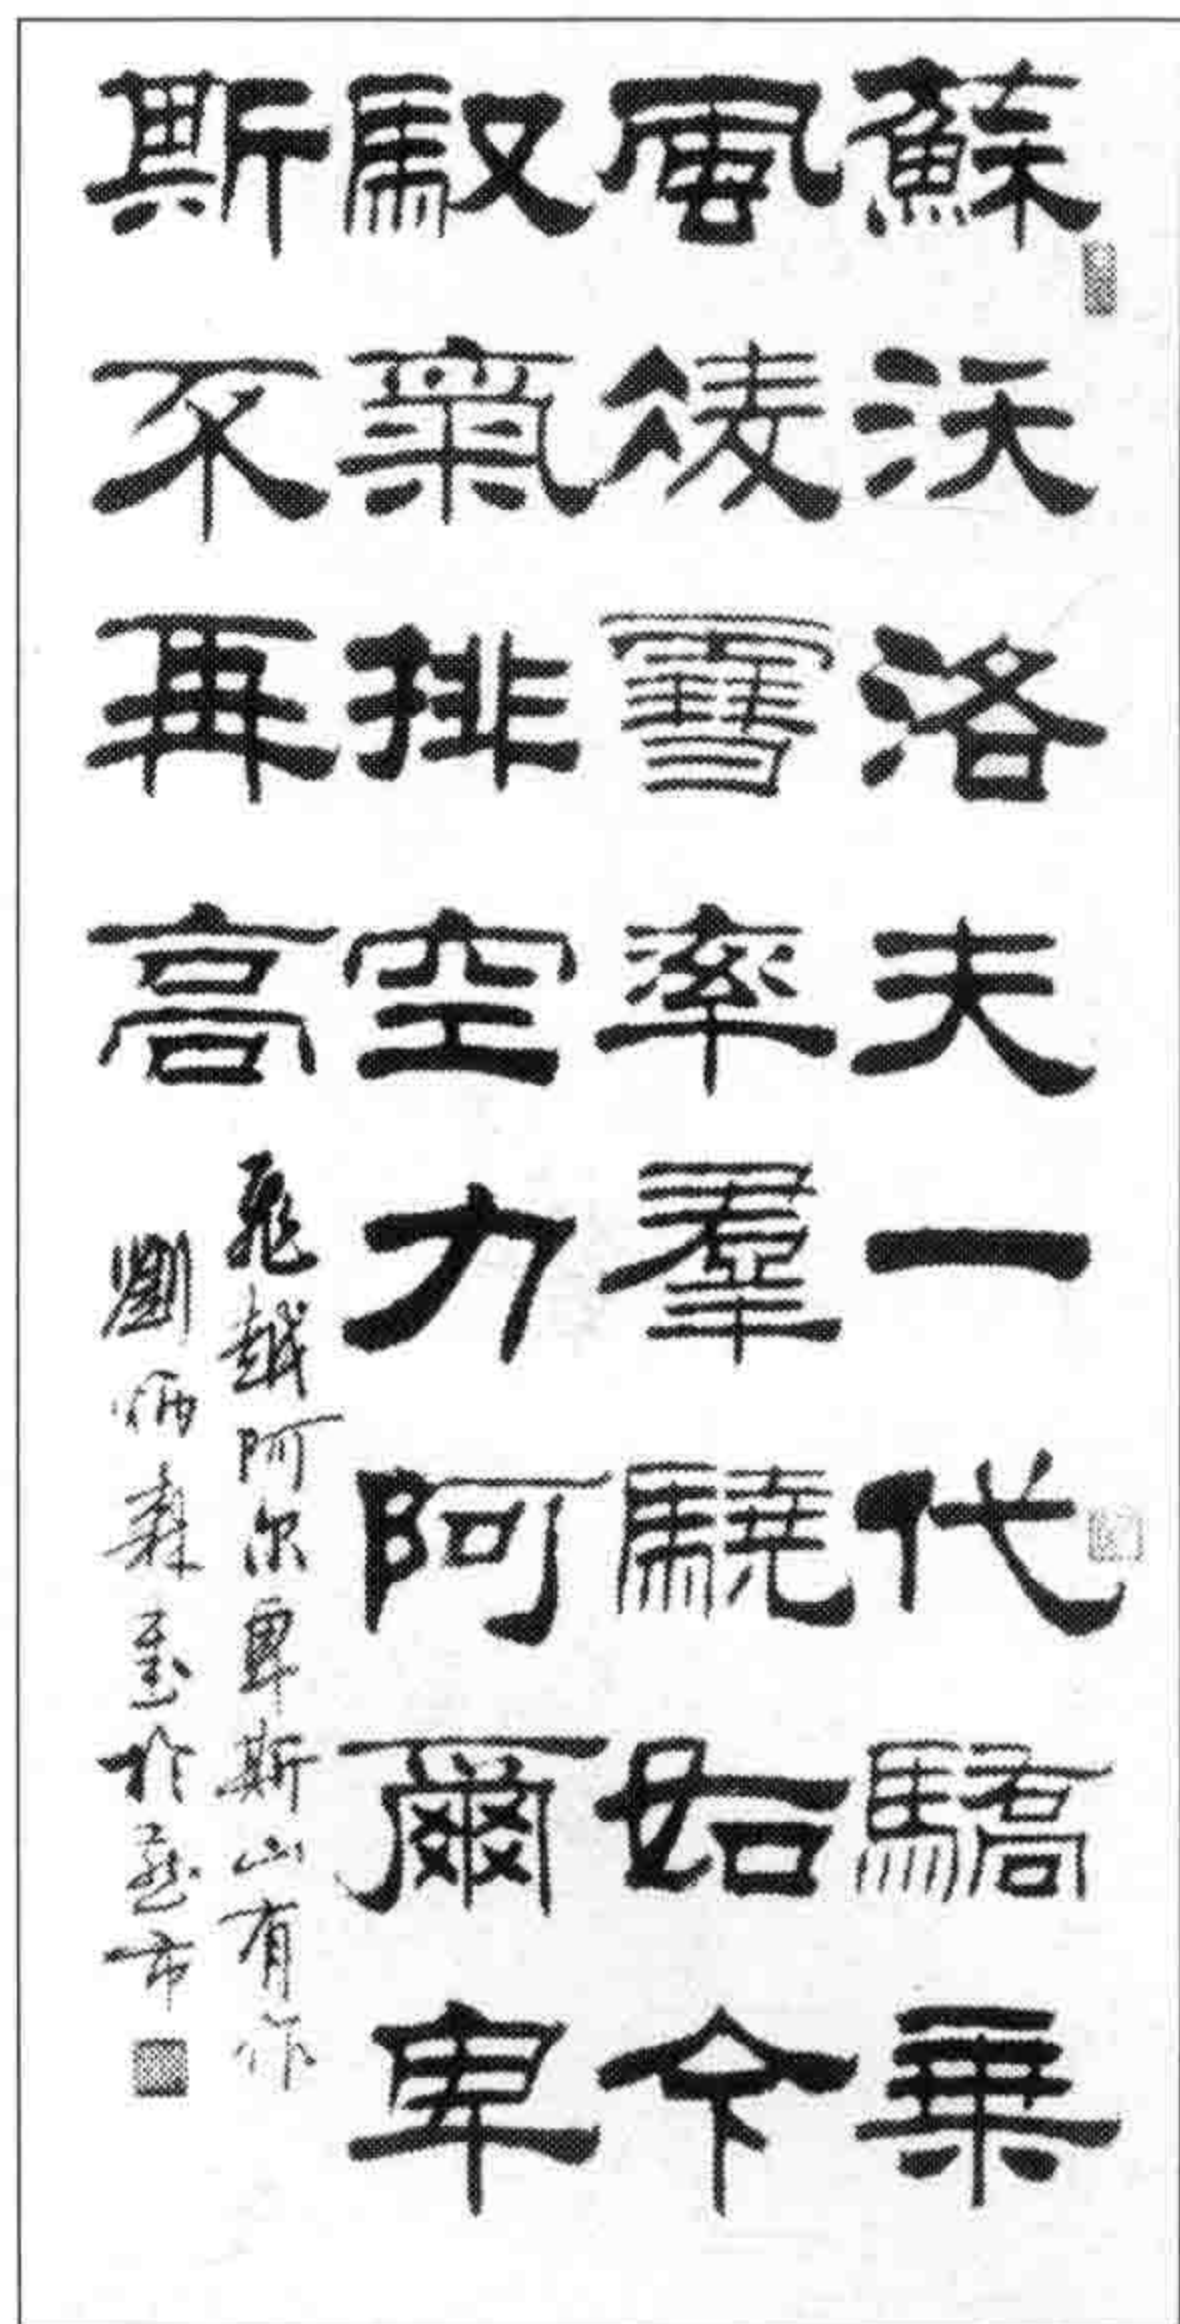 蘇沃洛夫一代驕乗
風凌雪率羣驍如今
馭氣排空力阿爾卑
斯不再高
飛越阿尔卑斯山有作
劉炳森書於燕市